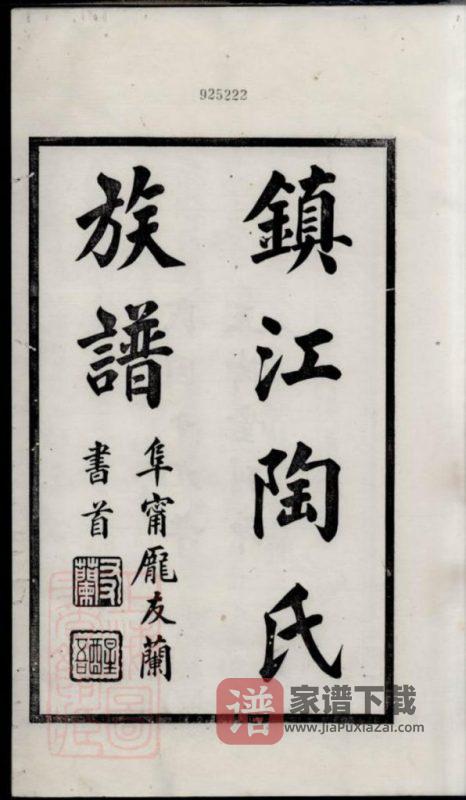 925222
鎮江陶氏
族譜
阜甯龐友蘭
書首
友蘭
譜 家谱下载
www.jiapuxiazai.com